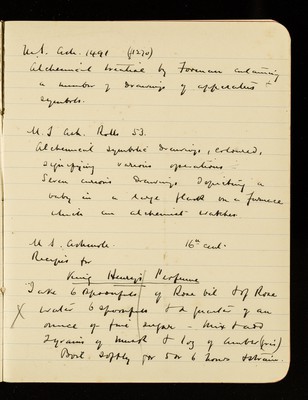 MS. Ash. 1491 (f1270)
Alchemical treatise by Forman containing
a number of drawings of apparatus &
symbols.
M.S Ash. Rolls 53.
Alchemical symbolic drawings, coloured,
signifying various operations.
Seven curious drawings depicting a
baby in a large flask on a furnace
which an alchemist watches
MS. Ashmole. 16th cent.
Receipts for
King Henry's Perfume
Take 6 spoonfuls of Rose oil & of Rose
X water 6 spoonfuls & a quarter of an
ounce of fine sugar - Mix & add
2 grains of Musk & 1 oz of Amber(gris)
Boil softly for 5 or 6 hours & strain.